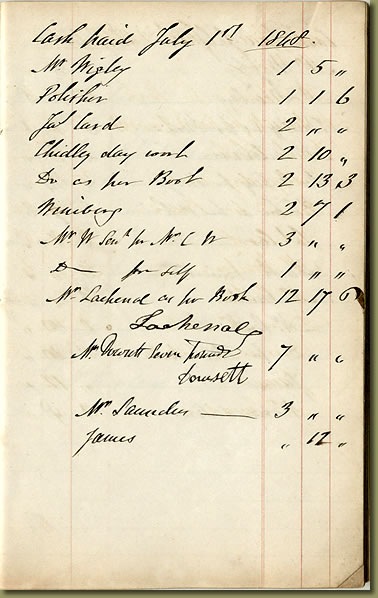 Cash paid July 1st 1848.
Mr Wigley 1 5 "
Polisher 1 1 6
Jas Card 2 " "
Chidley day work 2 10 "
Do as per Book 2 13 3
Wineberg 2 7 1
Mr W Senr for Mr C W 3 " "
D— for self 1 " "
Mr Lachend as pr Book 12 17 6
Lachenal
Mr seven Pounds 7 " "
Dowsett
Mr Saunders — 3 " "
James " 12 "